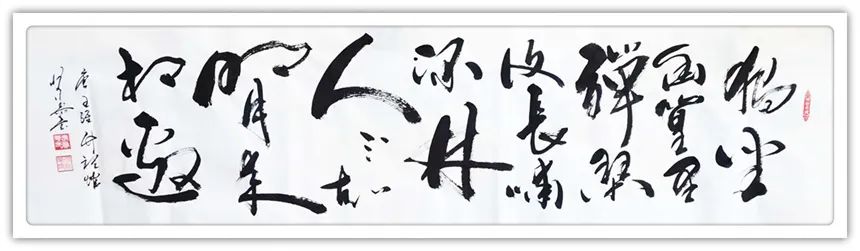 獨坐
幽篁里
彈琴
復長嘯
深林
人不知
明月来
相照
唐王维竹里館